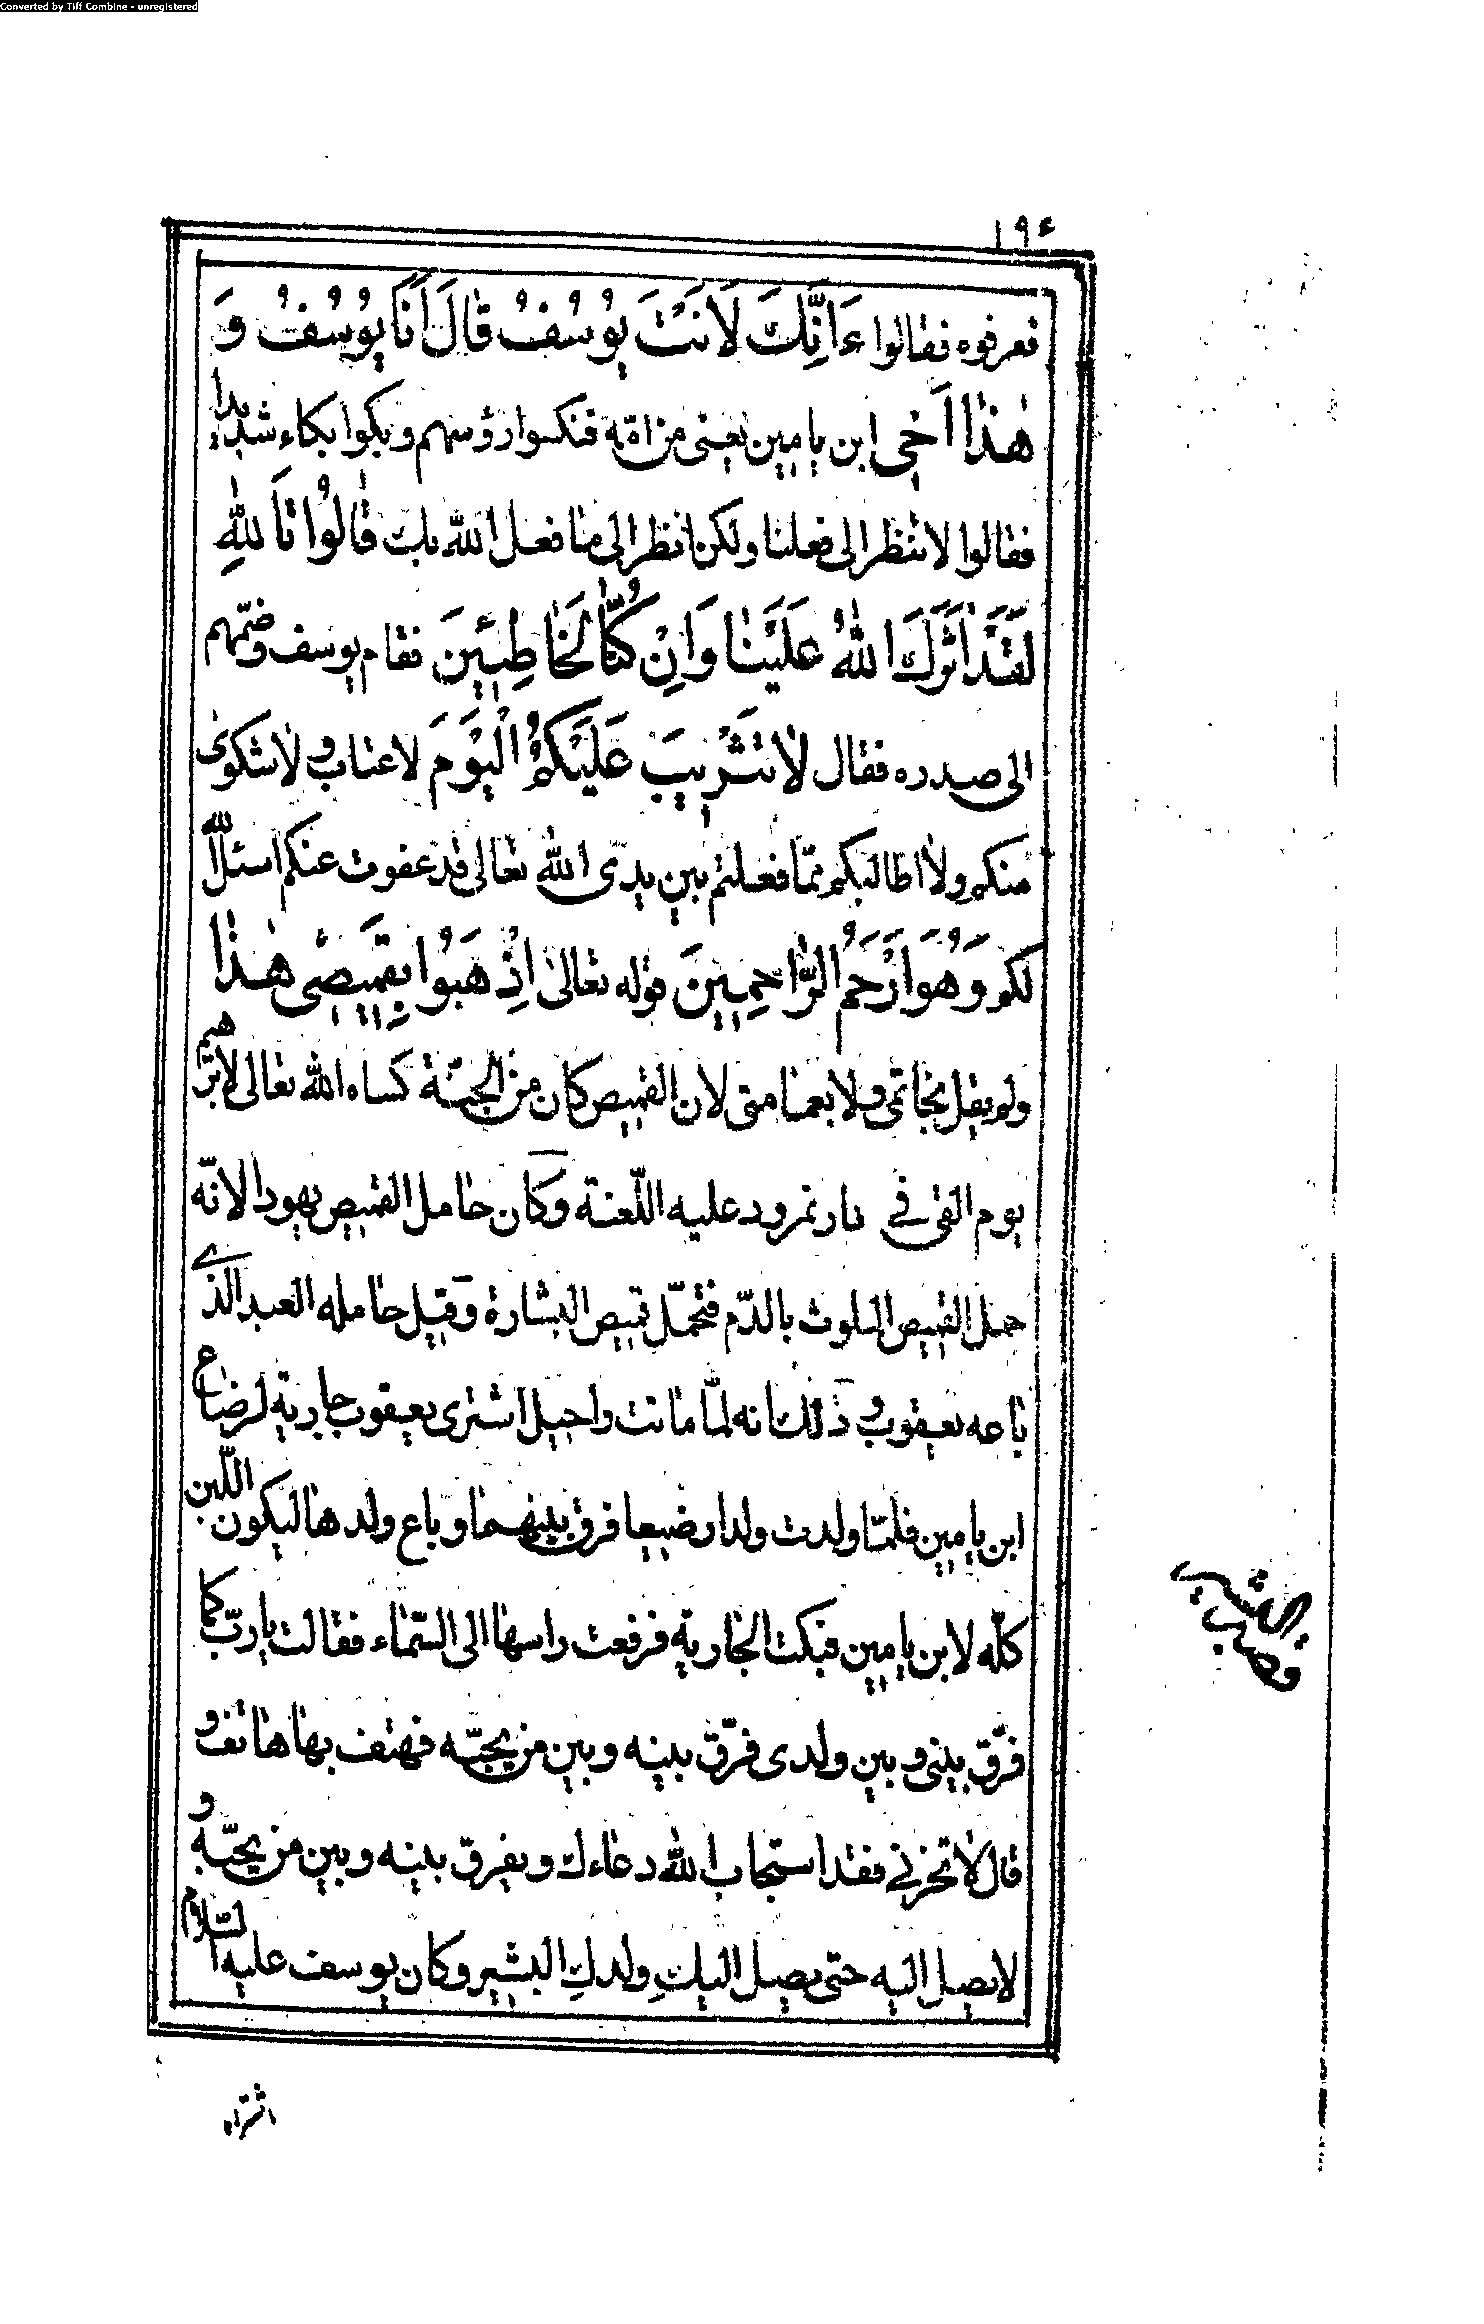 Converted by Tiff Combine - unregistered
١٩٤
فعرفوه فقالوا ءَاِنَّكَ لَاَنْتَ يُوسُفُ قَالَ اَنَا يُوسُفُ وَ
هٰذَا اَخِى ابن يامين يعنى من امّه فنكسوا رؤسهم وبكوا بكاء شديدا
فقالوا لا تنظر الى فعلنا ولكن انظر الى ما فعل الله بك قٰالُوا تَاللّٰهِ
لَقَدْ اٰثَرَكَ اللّٰهُ عَلَيْنٰا وَاِنْ كُنّٰا لَخٰاطِئِينَ فقام يوسف وضمّهم
الى صدره فقال لٰا تَثْرِيبَ عَلَيْكُمُ الْيَوْمَ لا عتاب ولا شكوى
منكم ولا اطالبكم ممّا فعلتم بين يدى الله تعالى قد عفوت عنكم اسئل الله
لكم وَهُوَ اَرْحَمُ الرّٰاحِمِينَ قوله تعالى اِذْهَبُوا بِقَمِيصِى هٰذٰا
ولم يقل بخاتمى ولا بعمامتى لان القميص كان من الجنّة كساه الله تعالى لابرٰهيم
يوم القى فى نار نمرود عليه اللعنة وكان حامل القميص يهودا لانّه
حمل القميص الملوث بالدّم فتحمّل قميص البشارة وقيل حامله العبد الذى
باعه يعقوب وذلك انه لمّا ماتت راحيل اشترى يعقوب جارية لرضاع
ابن يامين فلمّا ولدت ولدا رضيعا فرق بينهما وباع ولدها ليكون اللبن
كلّه لابن يامين فبكت الجارية فرفعت راسها الى السّماء فقالت يا ربّ كما
فرّق بينى وبين ولدى فرّق بينه وبين من يحبّه فهتف بها هاتف و
قال لا تحزنى فقد استجاب الله دعاءك ويفرق بينه وبين من يحبّه و
لا يصل اليه حتى يصل اليكِ ولدكِ البشير وكان يوسف عليه السّلام
اشتراه